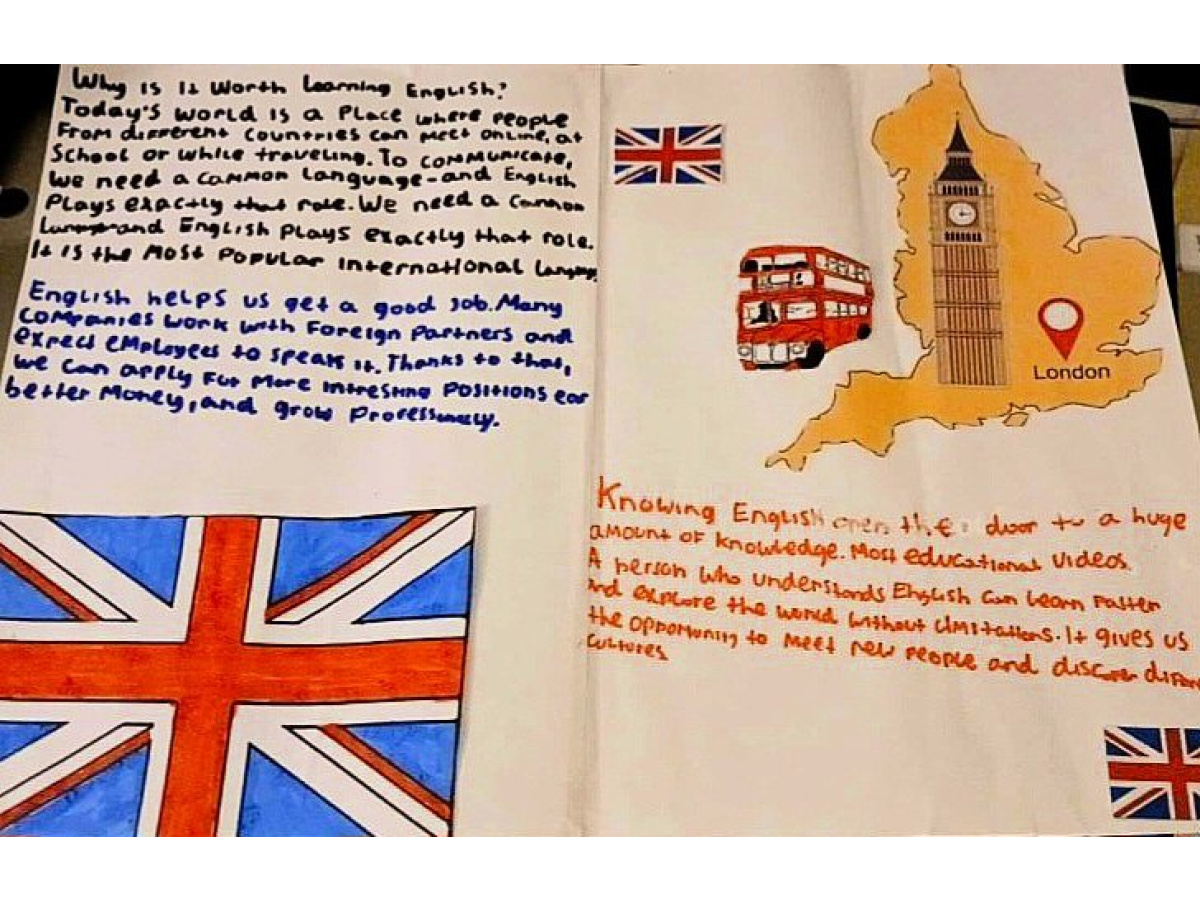 Why is it worth learning English?
Today's world is a place where people
from different countries can meet online, at
school or while traveling. To communicate,
we need a common language-and English
plays exactly that role. We need a common
and English plays exactly that role.
It is the most popular international
English helps us get a good job. Many
companies work with foreign partners and
expect employees to speak it. Thanks to that,
we can apply for more intresting positions ear
better money, and grow
London
Knowing English open the door to a huge
amount of knowledge. Most educational videos.
A person who understands English can learn faster
and explore the world without limitations. It gives us
the opportunity to meet new people and discover
cultures